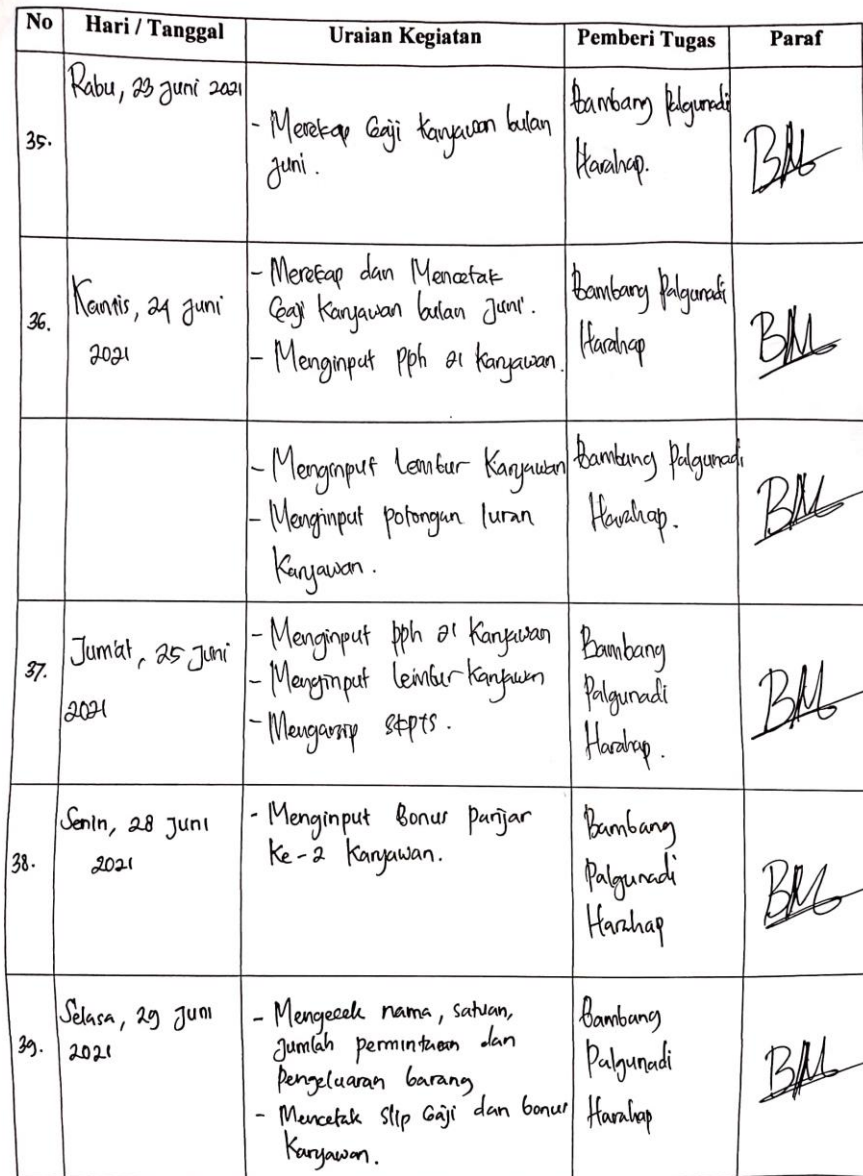 No Hari / Tanggal Uraian Kegiatan Pemberi Tugas Paraf
35.
Rabu, 23 Juni 2021
- Merekap Gaji Karyawan bulan
Juni.
Bambang Palgunadi
Harahap.
36.
Kamis, 24 Juni
2021
- Merekap dan Mencetak
Gaji Karyawan bulan Juni.
- Menginput pph 21 Karyawan.
Bambang Palgunadi
Harahap
- Menginput Lembur Karyawan
- Menginput potongan Iuran
Karyawan.
Bambang Palgunadi
Harahap.
37.
Jum'at, 25 Juni
2021
- Menginput pph 21 Karyawan
- Menginput Lembur Karyawan
- Mengarsip
Bambang
Palgunadi
Harahap.
38.
Senin, 28 Juni
2021
- Menginput Bonus Panjar
Ke-2 Karyawan.
Bambang
Palgunadi
Harahap
39.
Selasa, 29 Juni
2021
- Mengecek nama, satuan,
Jumlah permintaan dan
Pengeluaran barang
- Mencetak Slip Gaji dan bonus
Karyawan.
Bambang
Palgunadi
Harahap